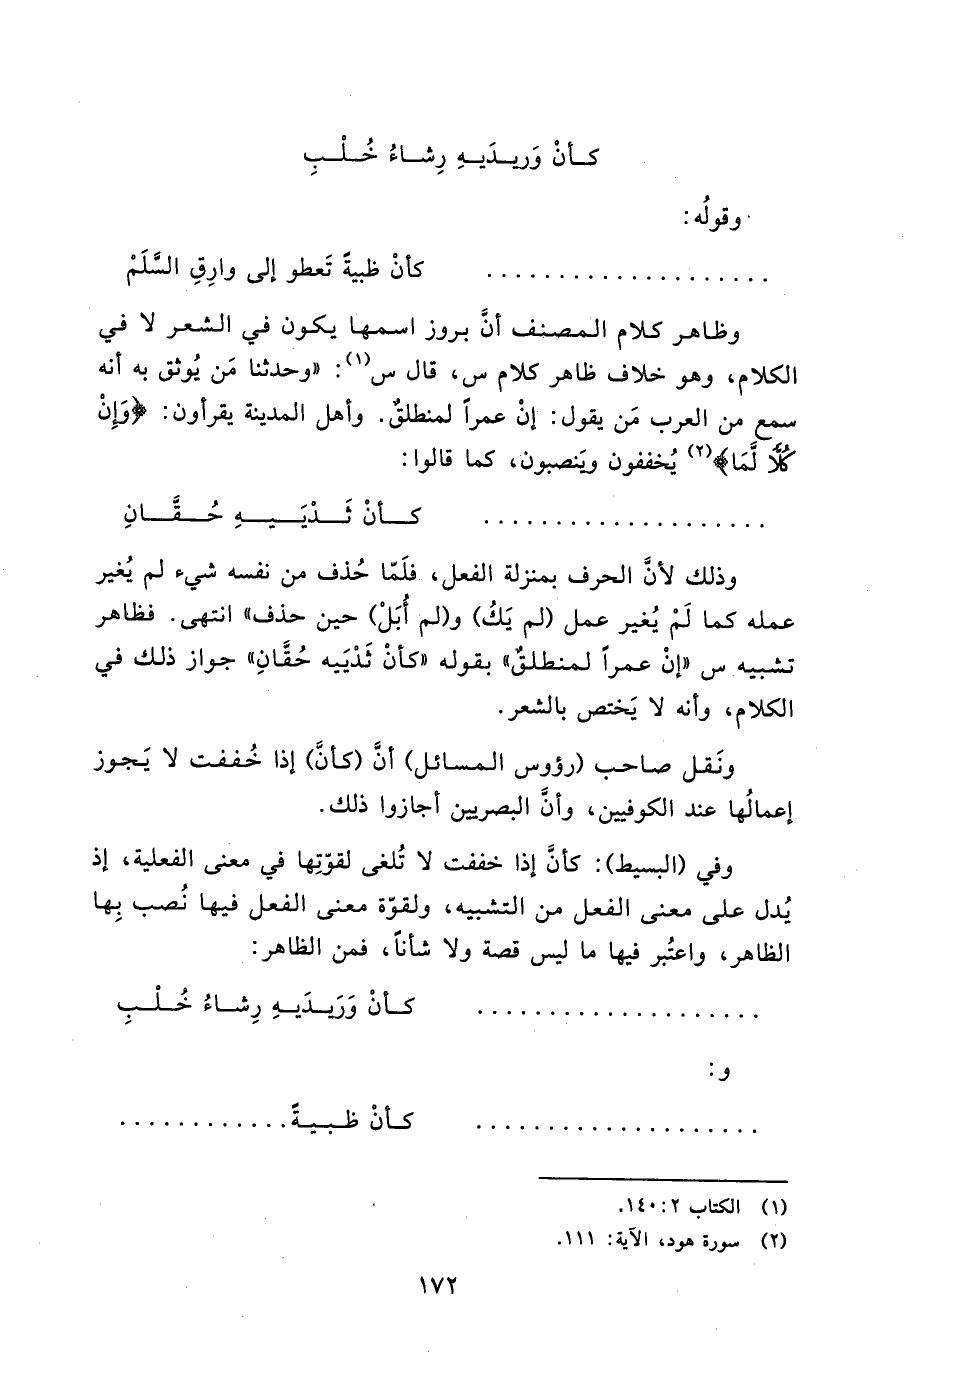 كـأنْ وَريـدَيـهِ رِشـاءُ خُـلْـبِ
وقولُه:
.................... كأنْ ظبيةً تَعطو إلى وارِقِ السَّلَمْ
وظاهر كلام المصنف أنَّ بروز اسمها يكون في الشعر لا في
الكلام، وهو خلاف ظاهر كلام س، قال س(١): «وحدثنا مَن يُوثق به أنه
سمع من العرب مَن يقول: إنْ عمراً لمنطلقٌ. وأهل المدينة يقرأون: ﴿وَإِنْ
كُلًّا لَّمَا﴾(٢) يُخففون ويَنصبون، كما قالوا:
.................... كـأنْ ثَـدْيَـيـهِ حُـقَّـانِ
وذلك لأنَّ الحرف بمنزلة الفعل، فلَمّا حُذف من نفسه شيء لم يُغير
عمله كما لَمْ يُغير عمل (لم يَكُ) و(لم أُبَلْ) حين حذف» انتهى. فظاهر
تشبيه س «إنْ عمراً لمنطلقٌ» بقوله «كأنْ ثَدْيَيه حُقَّانِ» جواز ذلك في
الكلام، وأنه لا يَختص بالشعر.
ونَقل صاحب (رؤوس المسائل) أنَّ (كأنَّ) إذا خُففت لا يَجوز
إعمالُها عند الكوفيين، وأنَّ البصريين أجازوا ذلك.
وفي (البسيط): كأنَّ إذا خففت لا تُلغى لقوّتِها في معنى الفعلية، إذ
يُدل على معنى الفعل من التشبيه، ولقوّة معنى الفعل فيها نُصب بِها
الظاهر، واعتُبر فيها ما ليس قصة ولا شأناً، فمن الظاهر:
.................... كـأنْ وَرَيـدَيـهِ رِشـاءُ خُـلْـبِ
و:
.................... كـأنْ ظـبـيـةً............
(١) الكتاب ٢: ١٤٠.
(٢) سورة هود، الآية: ١١١.
١٧٢